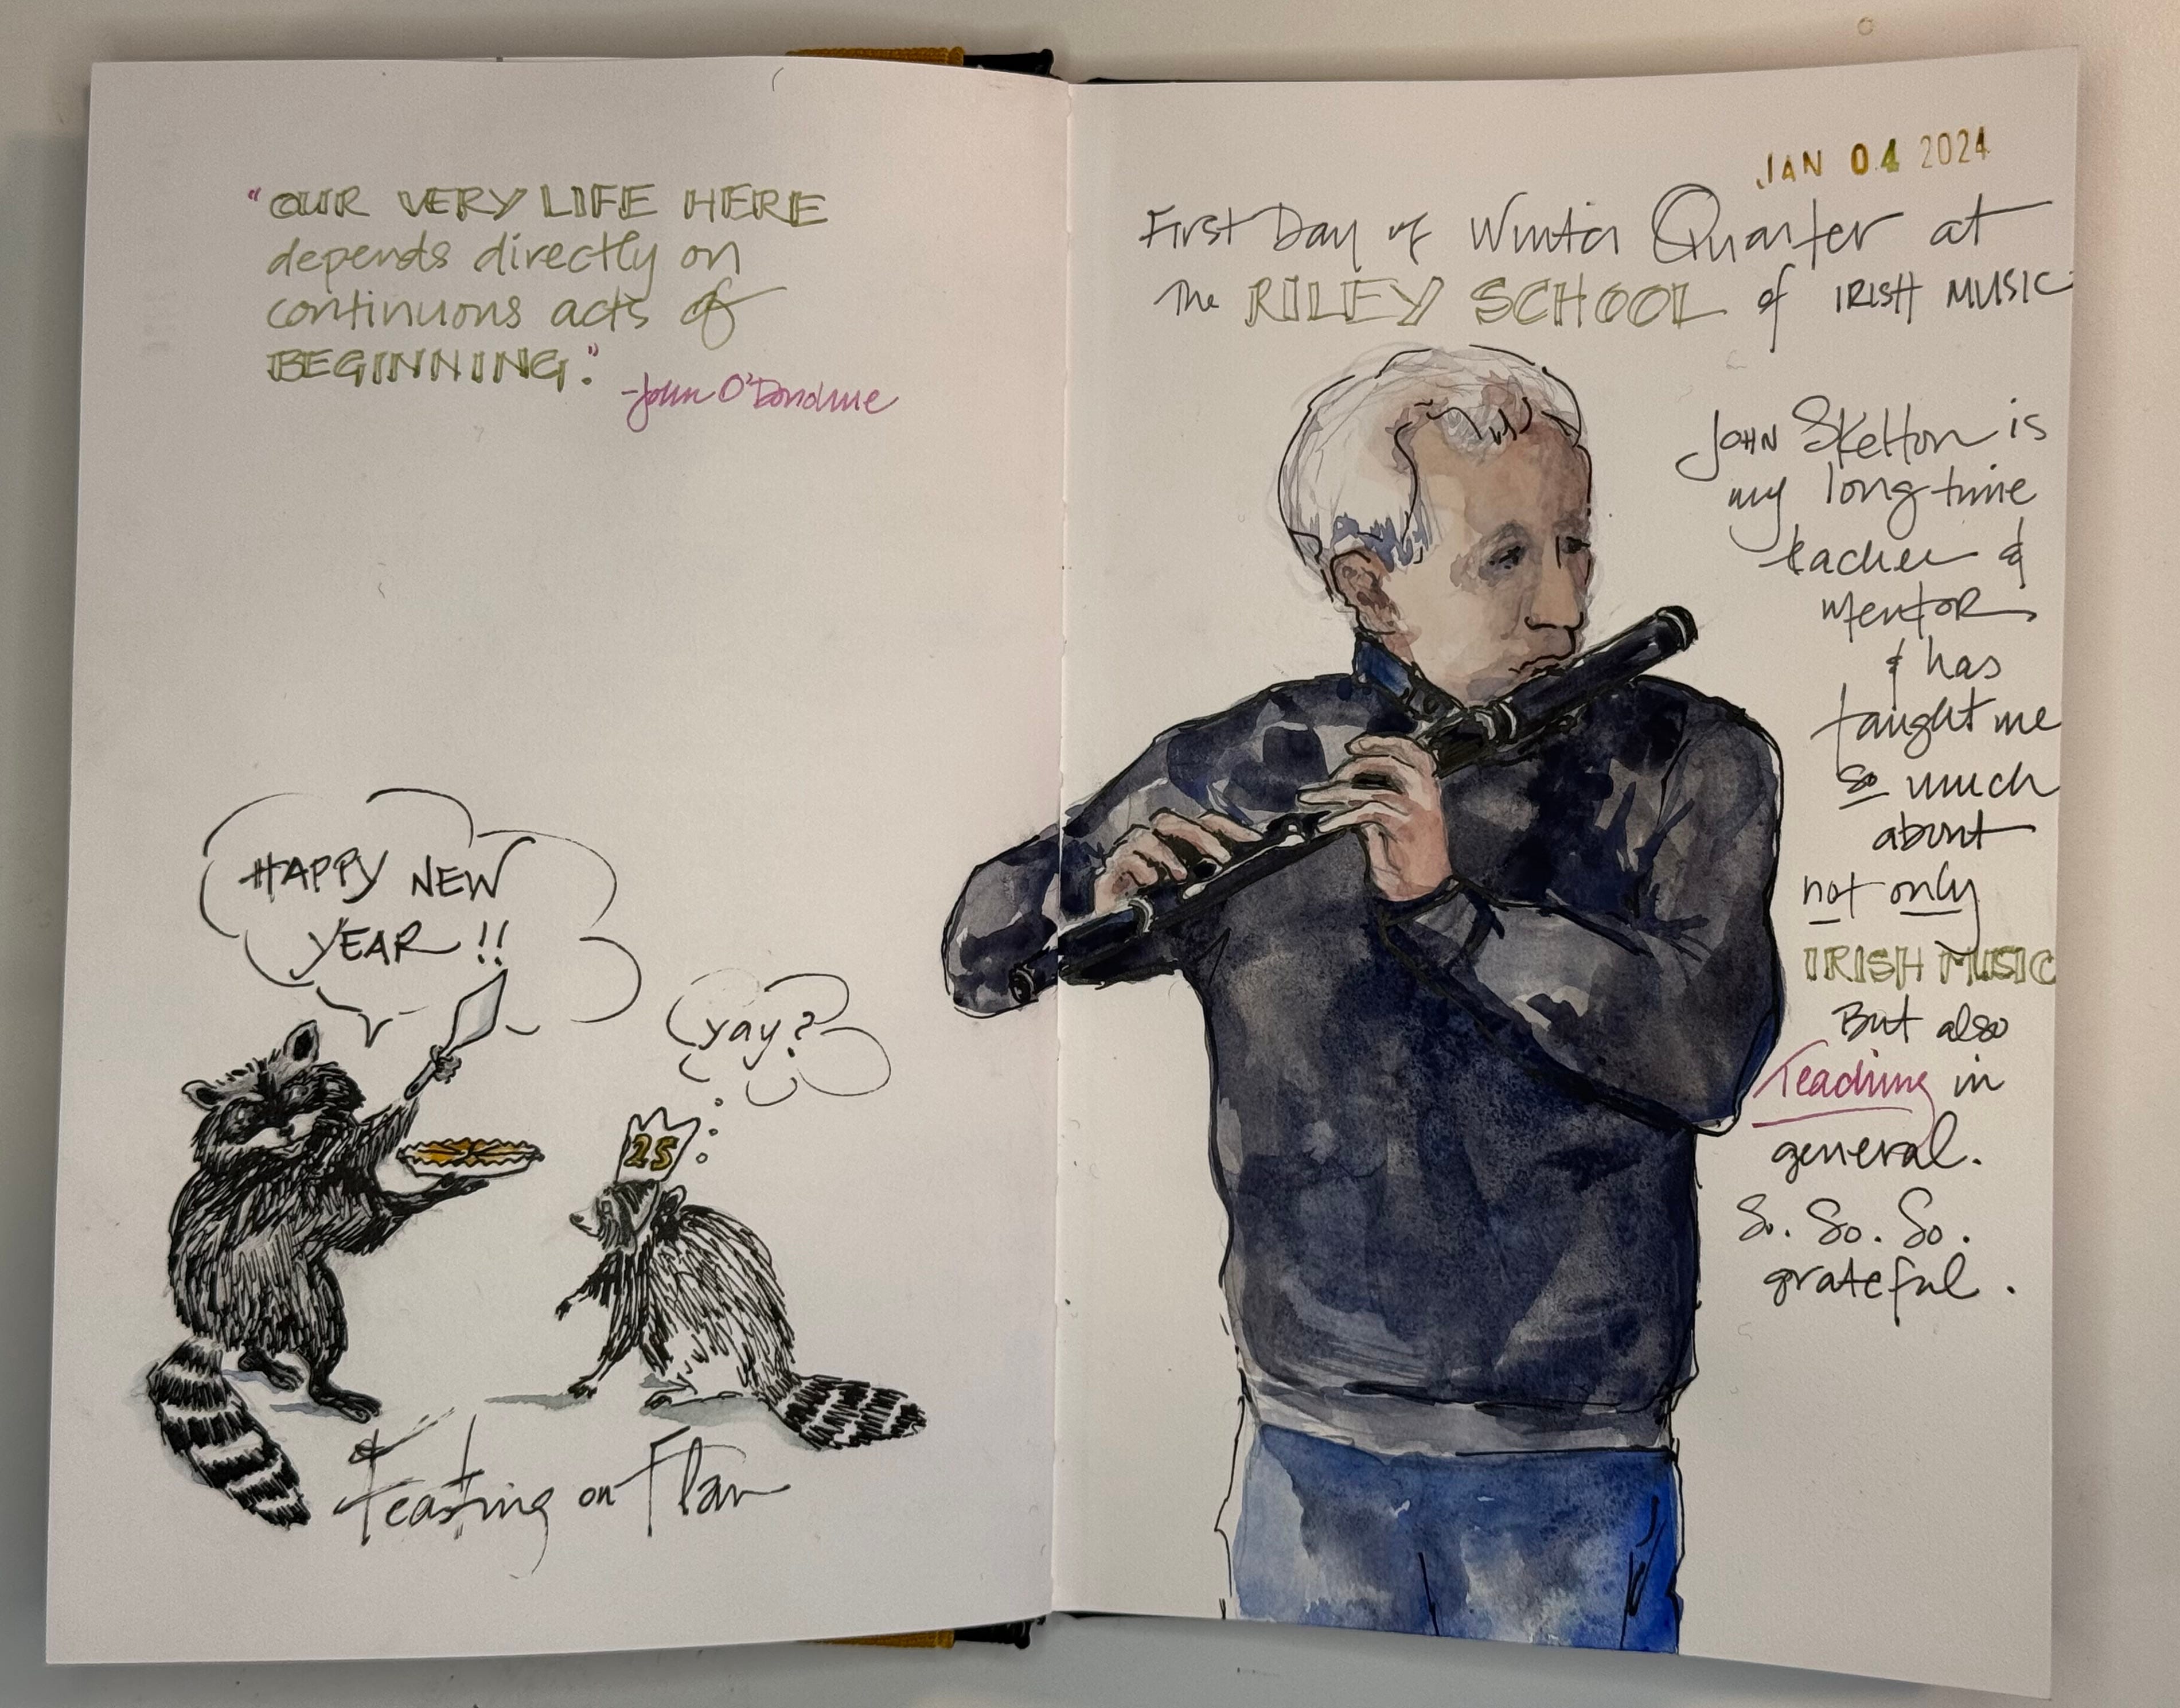 "OUR VERY LIFE HERE
depends directly on
continuous acts of
BEGINNING."
-John O'Donohue
HAPPY NEW
YEAR !!
yay?
25
Feasting on Flan
JAN 04 2024
First Day of Winter Quarter at
The RILEY SCHOOL of IRISH MUSIC
JOHN Skelton is
my long time
teacher &
mentor
& has
taught me
so much
about
not only
IRISH MUSIC
But also
Teaching in
general.
So. So. So.
grateful.